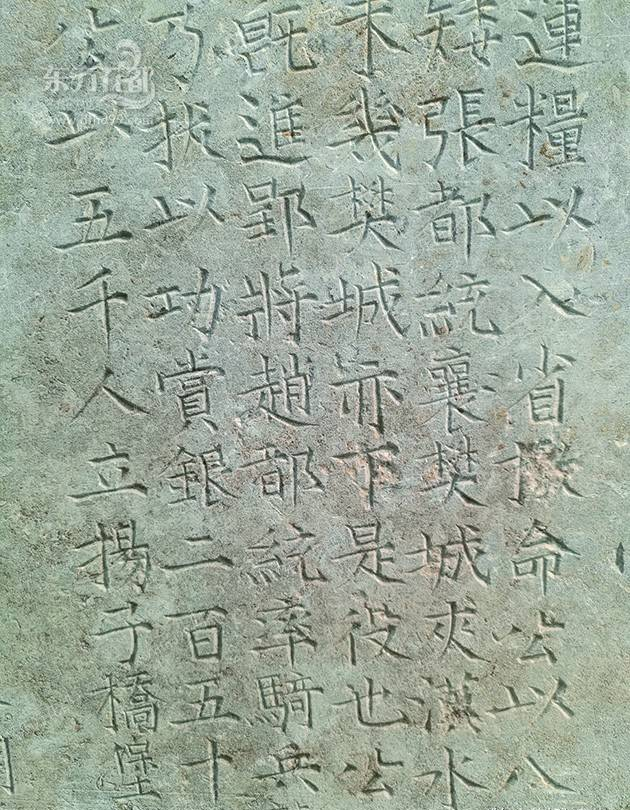 運糧以入省檄命公以八
矮張都統襄樊城夾漢水
未幾樊城亦下是役也公
既進郢將趙都統率騎兵
乃拔以功賞銀二百五十
公以五千人立揚子橋堡
东方花都